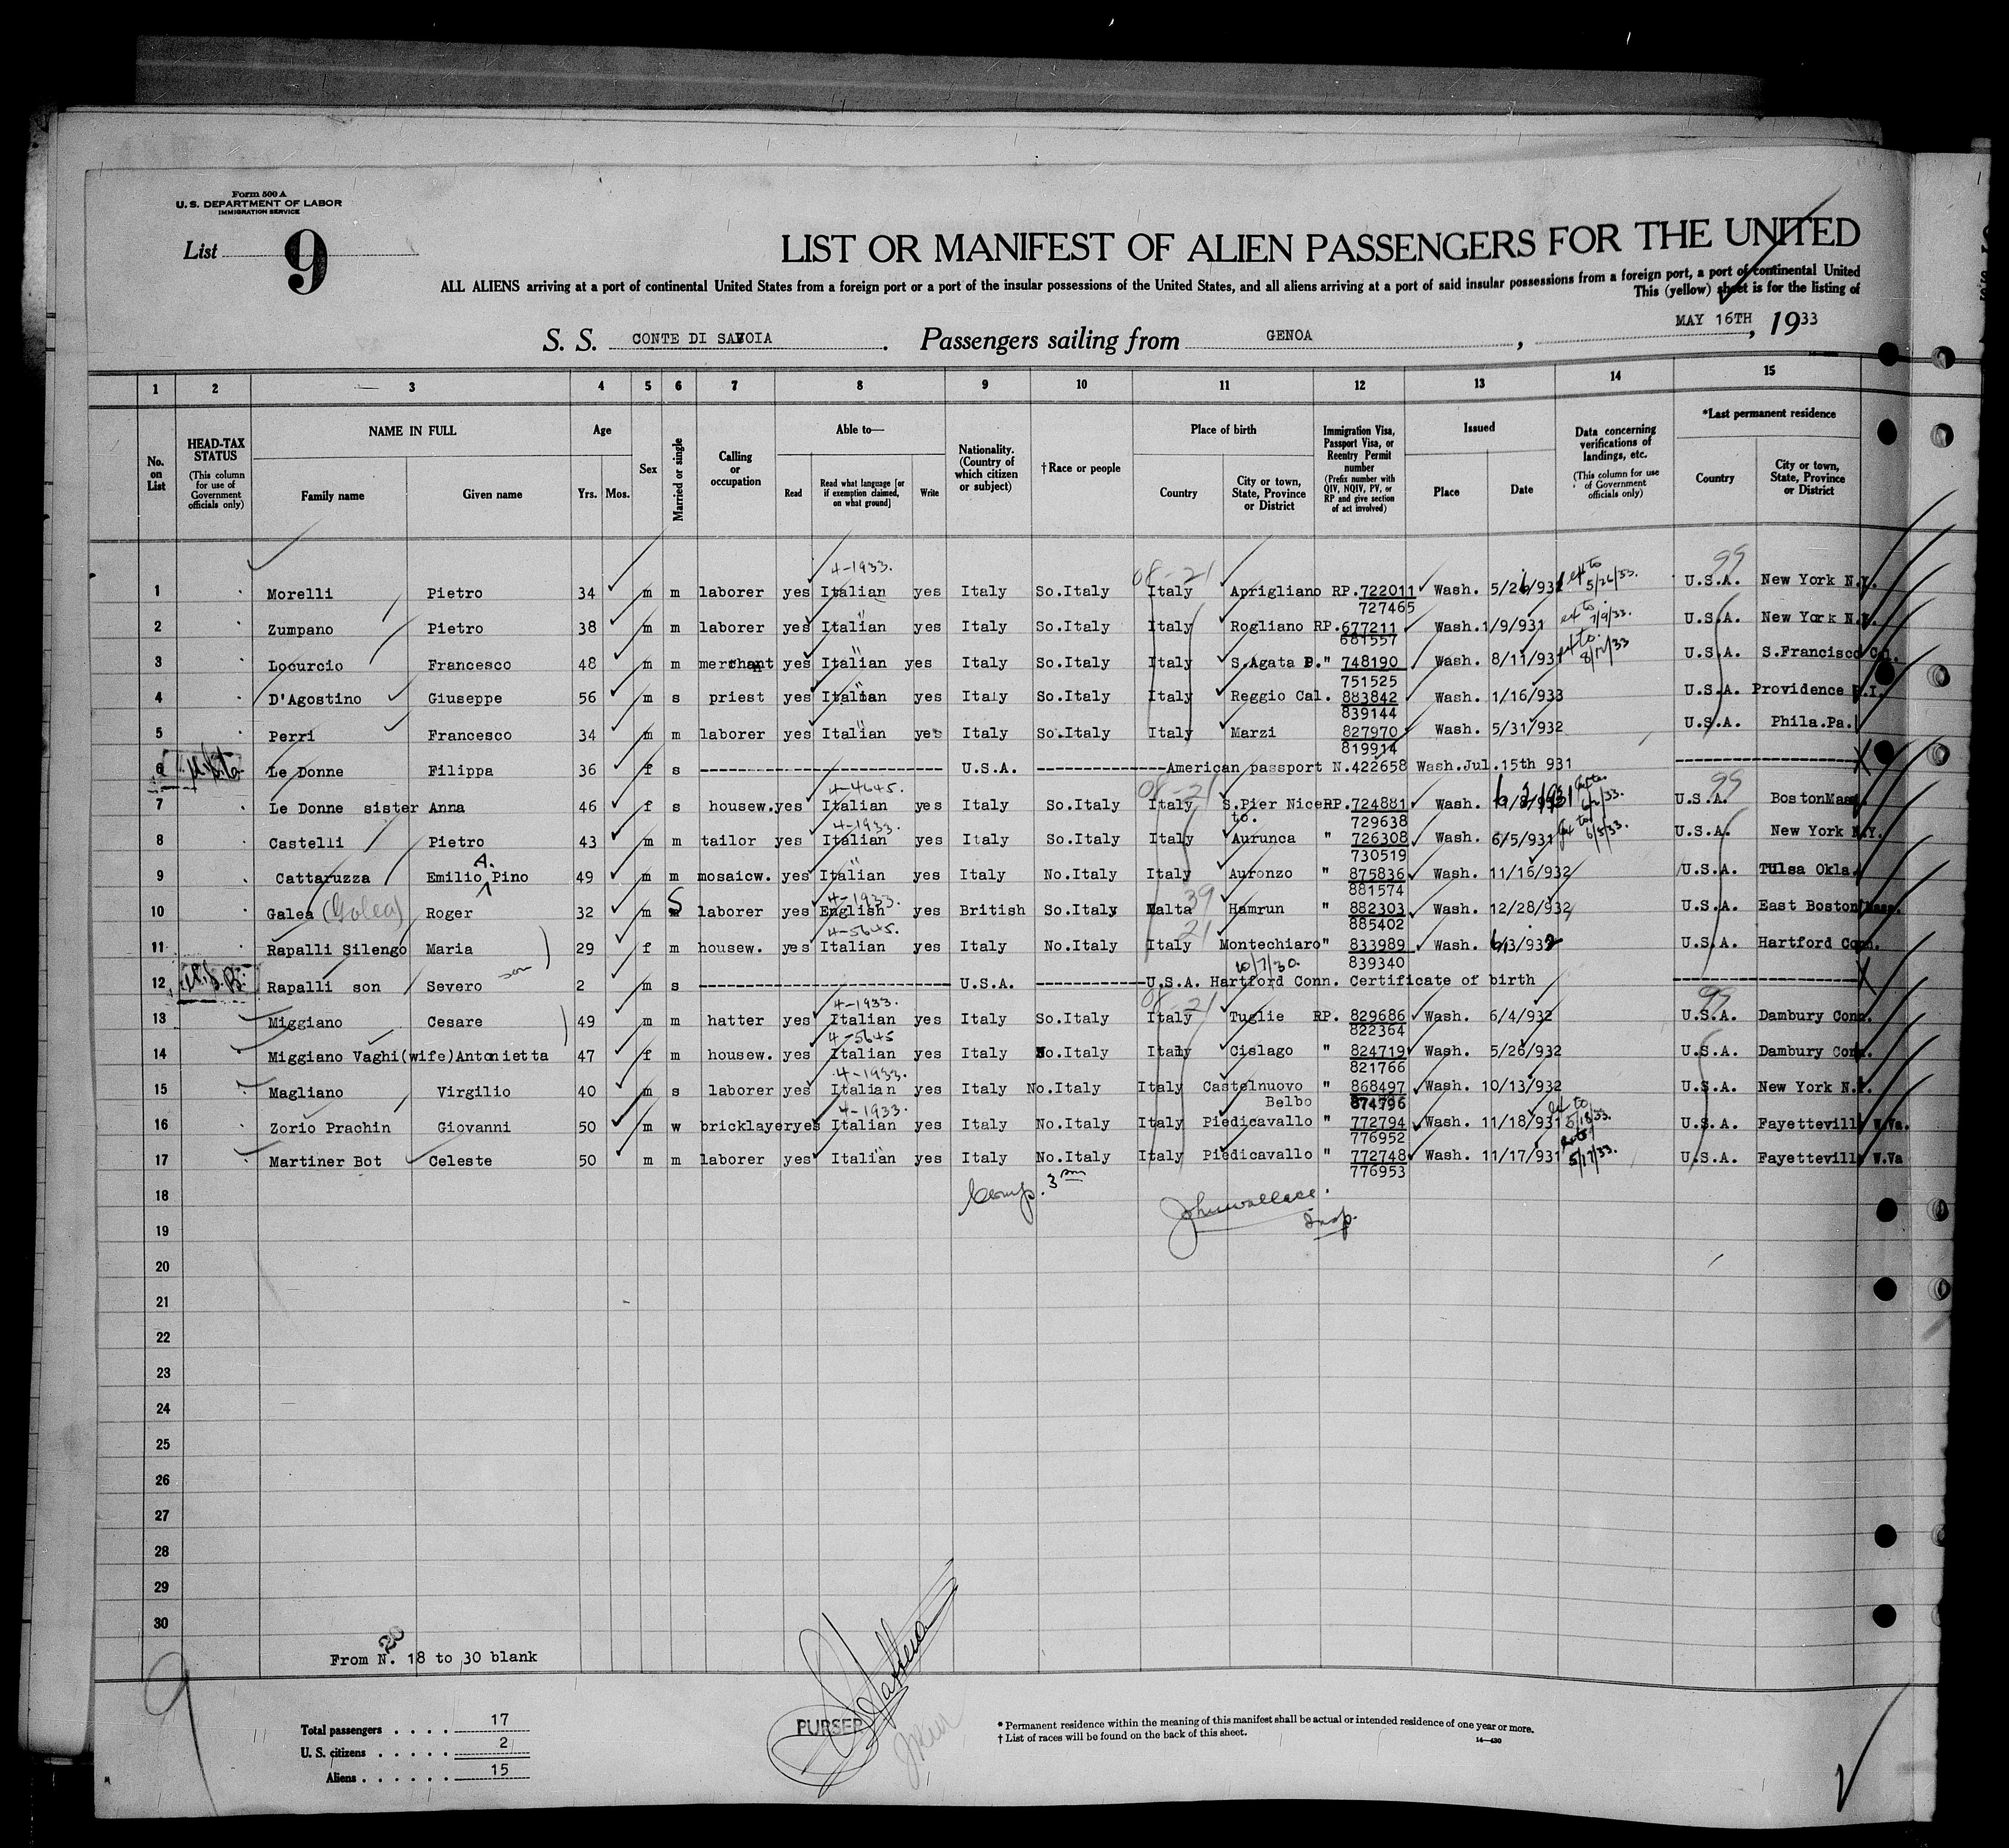 Form 500 A
U. S. DEPARTMENT OF LABOR
IMMIGRATION SERVICE
List 9
LIST OR MANIFEST OF ALIEN PASSENGERS FOR THE UNITED
ALL ALIENS arriving at a port of continental United States from a foreign port or a port of the insular possessions of the United States, and all aliens arriving at a port of said insular possessions from a foreign port, a port of continental United
This (yellow) sheet is for the listing of
S. S. CONTE DI SAVOIA. Passengers sailing from GENOA, MAY 16TH, 1933
1 2 3 4 5 6 7 8 9 10 11 12 13 14 15
No. on List
HEAD-TAX STATUS (This column for use of Government officials only)
NAME IN FULL Family name Given name
Age Yrs. Mos.
Sex
Married or single
Calling or occupation
Able to— Read Read what language [or if exemption claimed, on what ground] Write
Nationality. (Country of which citizen or subject)
†Race or people
Place of birth Country City or town, State, Province or District
Immigration Visa, Passport Visa, or Reentry Permit number (Prefix number with QIV, NQIV, PV, or RP and give section of act involved)
Issued Place Date
Data concerning verifications of landings, etc. (This column for use of Government officials only)
*Last permanent residence Country City or town, State, Province or District
4-1933. 08-21 99
1 Morelli Pietro 34 m m laborer yes Italian yes Italy So.Italy Italy Aprigliano RP. 722011 Wash. 5/26/932 ext to 5/26/33. U.S.A. New York N.Y.
727465
2 Zumpano Pietro 38 m m laborer yes Italian yes Italy So.Italy Italy Rogliano RP. 677211 Wash. 1/9/931 ext to 7/9/33. U.S.A. New York N.Y.
681557
3 Locurcio Francesco 48 m m merchant yes Italian yes Italy So.Italy Italy S.Agata P. " 748190 Wash. 8/11/931 ext to 8/11/33 U.S.A. S.Francisco Cal.
751525
4 D'Agostino Giuseppe 56 m s priest yes Italian yes Italy So.Italy Italy Reggio Cal. 883842 Wash. 1/16/933 U.S.A. Providence R.I.
839144
5 Perri Francesco 34 m m laborer yes Italian yes Italy So.Italy Italy Marzi 827970 Wash. 5/31/932 U.S.A. Phila.Pa.
819914
6 Le Donne Filippa 36 f s ---------- U.S.A. ----------American passport N.422658 Wash.Jul.15th 931 ---------- X
4-4645. 08-21 99
7 Le Donne sister Anna 46 f s housew. yes Italian yes Italy So.Italy Italy S.Pier Nice RP. 724881 Wash. U.S.A. Boston Mass.
to. 729638
4-1933.
8 Castelli Pietro 43 m m tailor yes Italian yes Italy So.Italy Italy Aurunca " 726308 Wash. 6/5/931 ext to 6/5/33. U.S.A. New York N.Y.
730519
A.
9 Cattaruzza Emilio Pino 49 m m mosaicw. yes Italian yes Italy No.Italy Italy Auronzo " 875836 Wash. 11/16/932 U.S.A. Tulsa Okla.
881574
4-1933. 39
10 Galea (Galea) Roger 32 m S laborer yes English yes British So.Italy Malta Hamrun " 882303 Wash. 12/28/932 U.S.A. East Boston Mass.
885402
4-5645. 21
11 Rapalli Silengo Maria 29 f m housew. yes Italian yes Italy No.Italy Italy Montechiaro " 833989 Wash. 6/3/932 U.S.A. Hartford Conn.
839340
son 10/7/30.
12 U.S.B. Rapalli son Severo 2 m s ---------- U.S.A. ----------U.S.A. Hartford Conn. Certificate of birth ---------- X
4-1933. 08-21 99
13 Miggiano Cesare 49 m m hatter yes Italian yes Italy So.Italy Italy Tuglie RP. 829686 Wash. 6/4/932 U.S.A. Dambury Conn.
822364
4-5645
14 Miggiano Vaghi(wife)Antonietta 47 f m housew. yes Italian yes Italy No.Italy Italy Cislago " 824719 Wash. 5/26/932 U.S.A. Dambury Conn.
821766
4-1933.
15 Magliano Virgilio 40 m s laborer yes Italian yes Italy No.Italy Italy Castelnuovo " 868497 Wash. 10/13/932 U.S.A. New York N.Y.
Belbo 874796
4-1933.
16 Zorio Prachin Giovanni 50 m w bricklayer yes Italian yes Italy No.Italy Italy Piedicavallo " 772794 Wash. 11/18/931 ext to 5/18/33. U.S.A. Fayettevill W.Va.
776952
17 Martiner Bot Celeste 50 m m laborer yes Italian yes Italy No.Italy Italy Piedicavallo " 772748 Wash. 11/17/931 5/17/33. U.S.A. Fayettevill W.Va
776953
18
John Wallace.
19 Insp.
20
21
22
23
24
25
26
27
28
29
30
20
From N. 18 to 30 blank
9
Total passengers . . . . 17
U. S. citizens . . . . . 2
Aliens . . . . . . 15
PURSER
* Permanent residence within the meaning of this manifest shall be actual or intended residence of one year or more.
† List of races will be found on the back of this sheet.
14—430